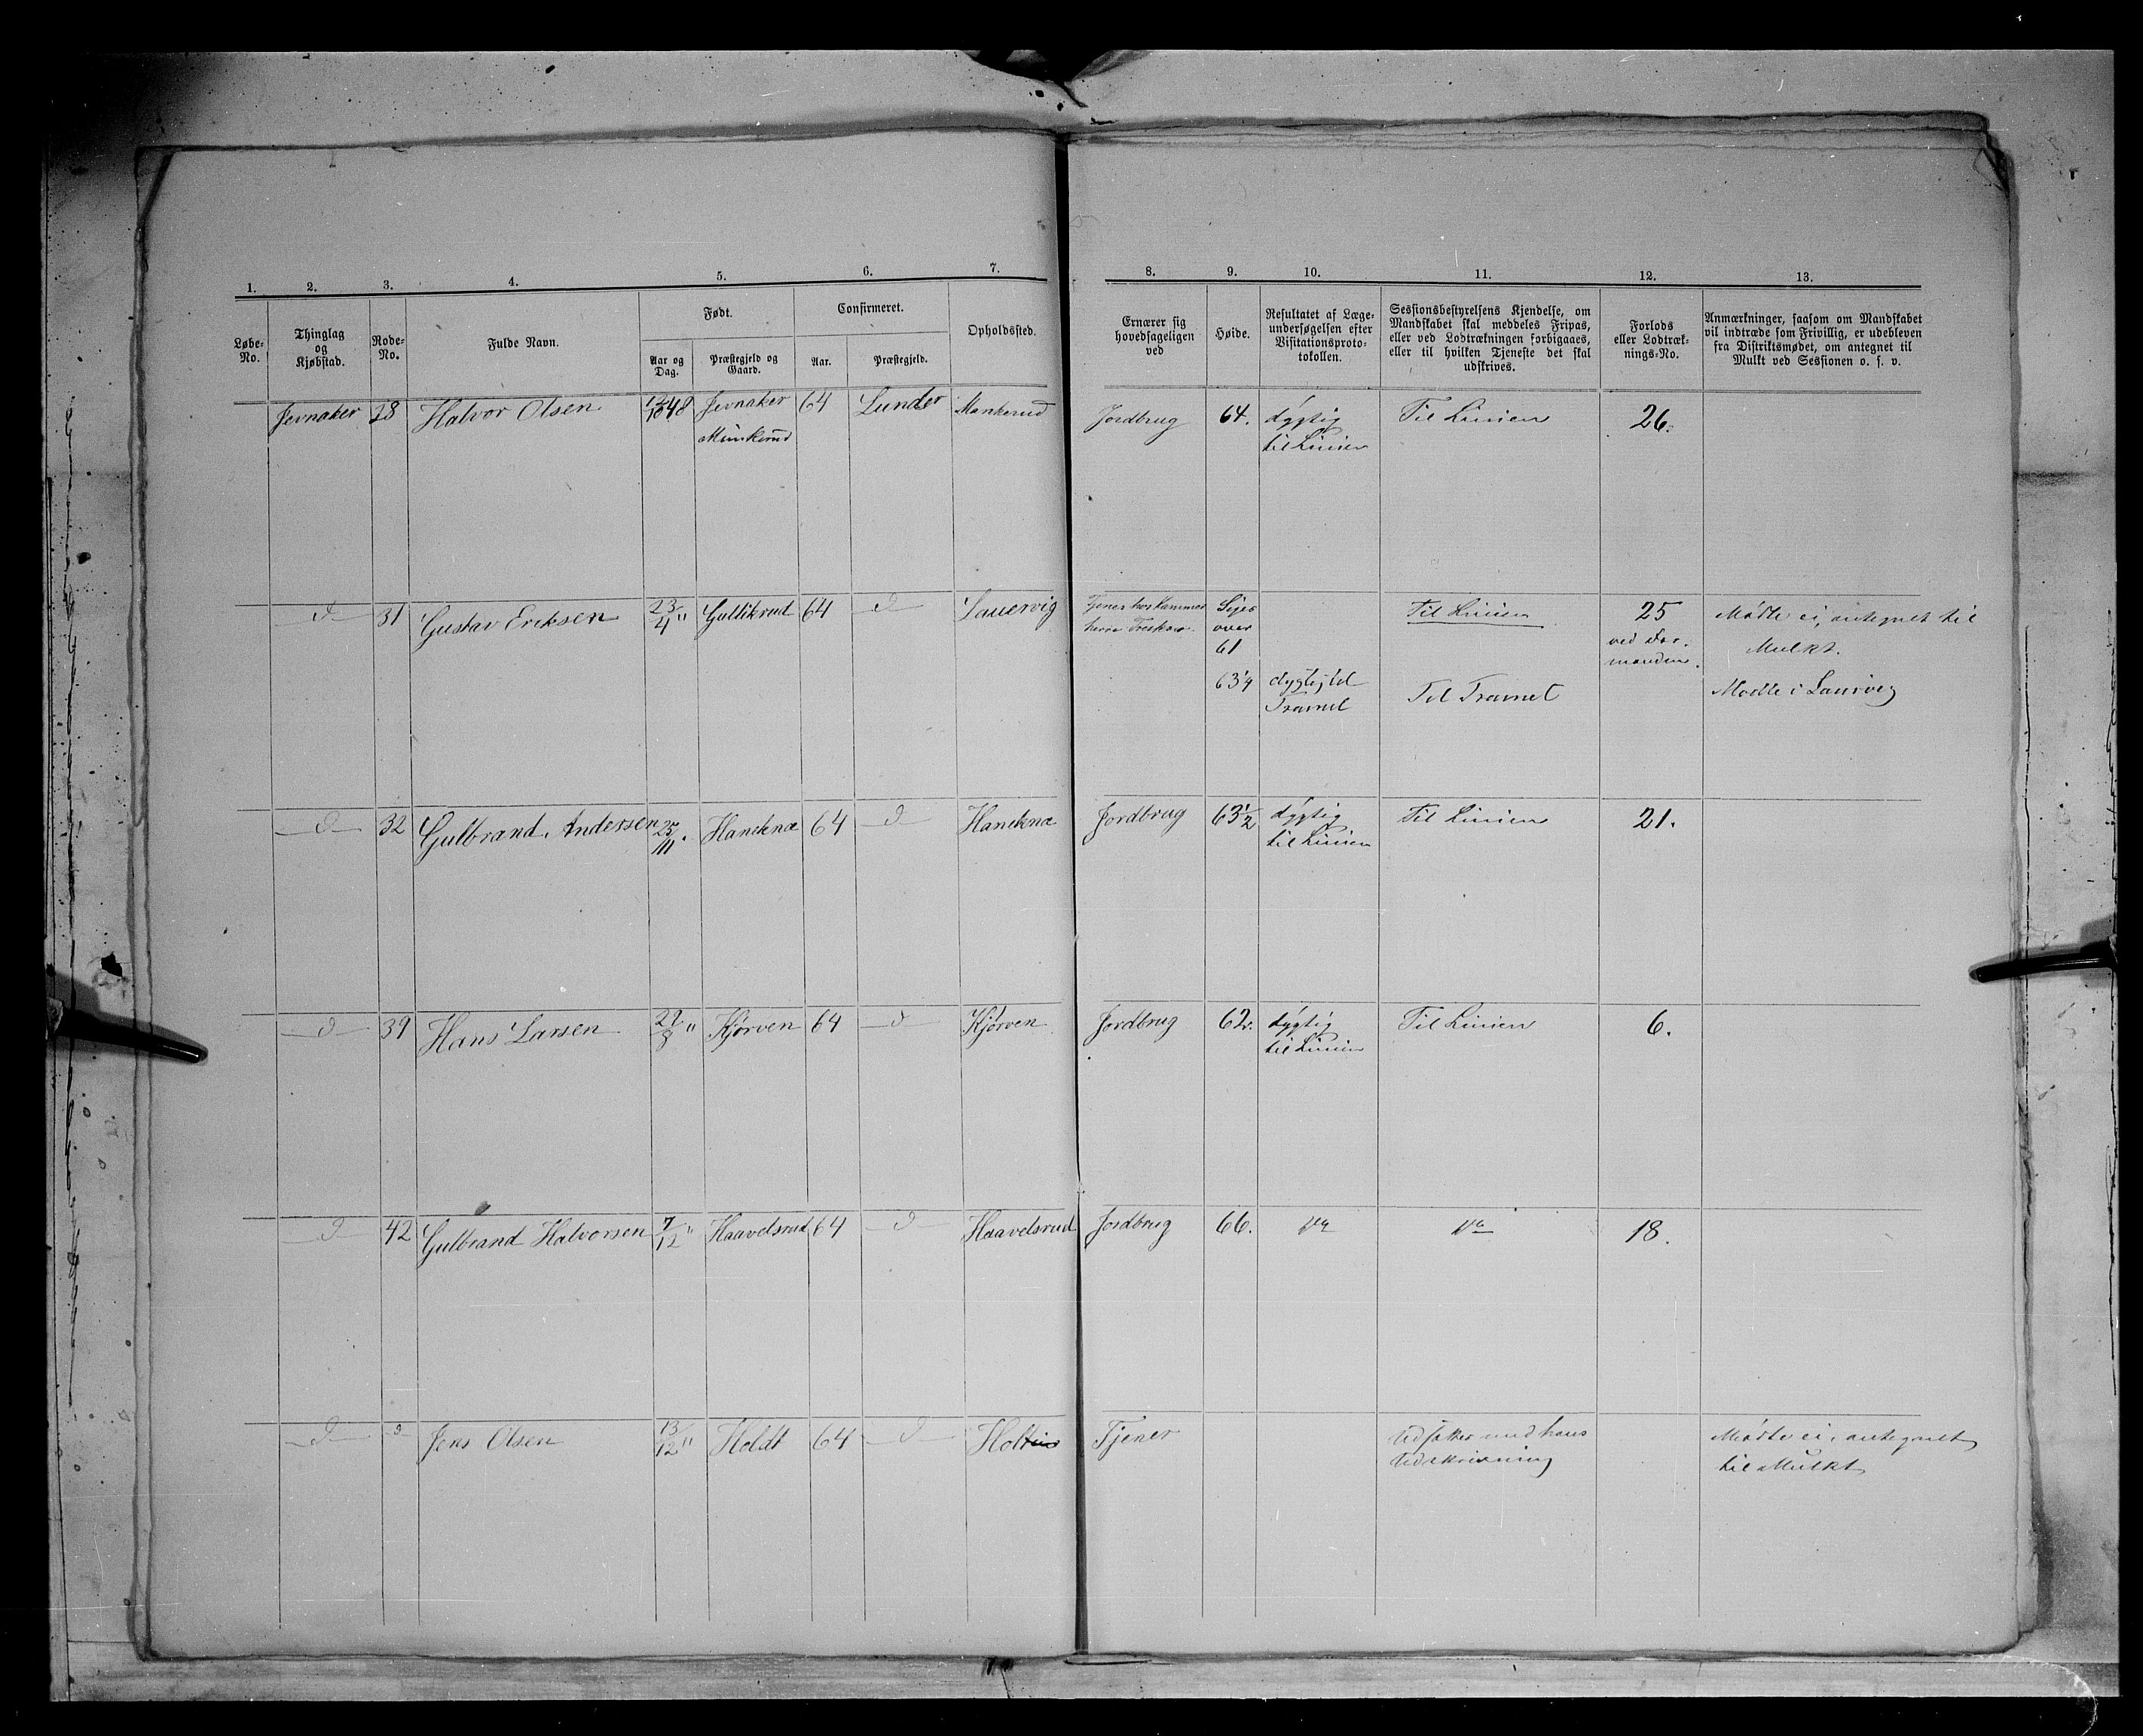 1. 2. 3. 4. 5. 6. 7. 8. 9. 10. 11. 12. 13.
Løbe-No.
Thinglag og Kjøbstad.
Rode-No.
Fulde Navn.
Født.
Aar og Dag.
Præstegjeld og Gaard.
Confirmeret.
Aar.
Præstegjeld.
Opholdssted.
Ernærer sig hovedsageligen ved
Høide.
Resultatet af Læge-undersøgelsen efter Visitationsproto-tokollen.
Sessionsbestyrelsens Kjendelse, om Mandskabet skal meddeles Fripas, eller ved Lodtrækningen forbigaaes, eller til hvilken Tjeneste det skal udskrives.
Forlods eller Lodtræk-nings-No.
Anmærkninger, saasom om Mandskabet vil indtræde som Frivillig, er udebleven fra Distriktsmødet, om antegnet til Mulkt ved Sessionen o. s. v.
Jevnaker 28 Halvor Olsen 48 Jevnaker 64 Lunder Jordbrug 64. dygtig Til Linien 26.
til Linien
31 Gustav Eriksen 23/4 " Gullikrud 64 Tjener hos Kammer Siges Til Linien 25 Mødte ei, antegnet til
herre Treskow. over ved For- Mulkt.
61 manden.
63 1/4 dygtig til Til Trainet Mødte i Laurvig
Trainet
32 Gulbrand Andersen 25 64 Jordbrug 63 1/2 dygtig Til Linien 21.
til Linien
39 Hans Larsen " Kjørven 64 Kjørven Jordbrug 62. dygtig Til Linien 6.
til Linien
42 Gulbrand Halvorsen 7/12 " Haavelsrud 64 Haavelsrud Jordbrug 66. 18.
Jens Olsen 13/12 " Holdt 64 Tjener Udsættes med hans Mødte ei, antegnet
Udskrivning til Mulkt